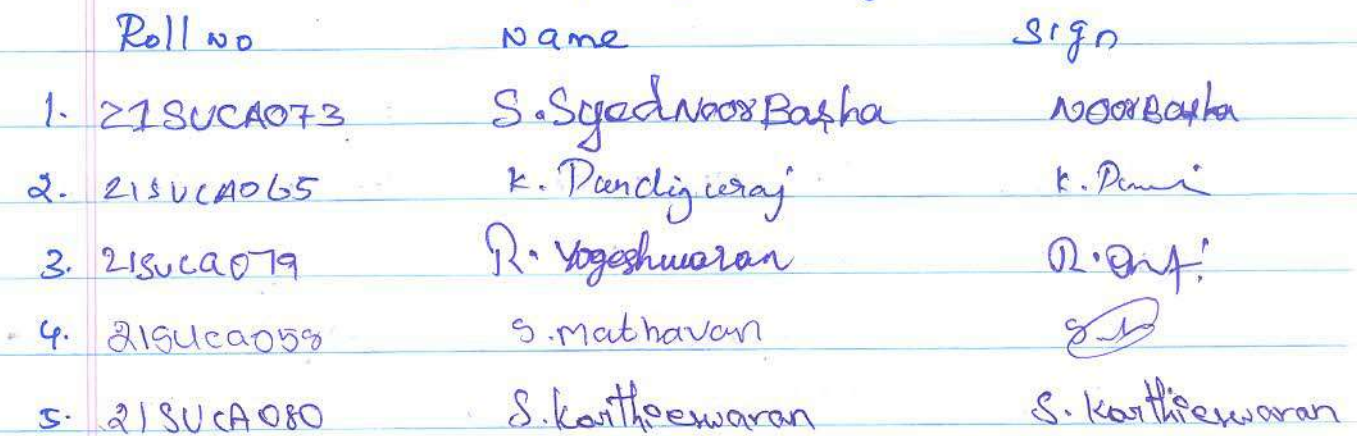 Roll no Name Sign
1. 21SUCA073 S.Syed Noor Basha Noor Basha
2. 21SUCA065 K. Pandiyaraj K.
3. 21SUCA079 R. Yogeshwaran R.
4. 21SUCA058 S. Mathavan
5. 21SUCA080 S. Kartheeswaran S. Karthieswaran